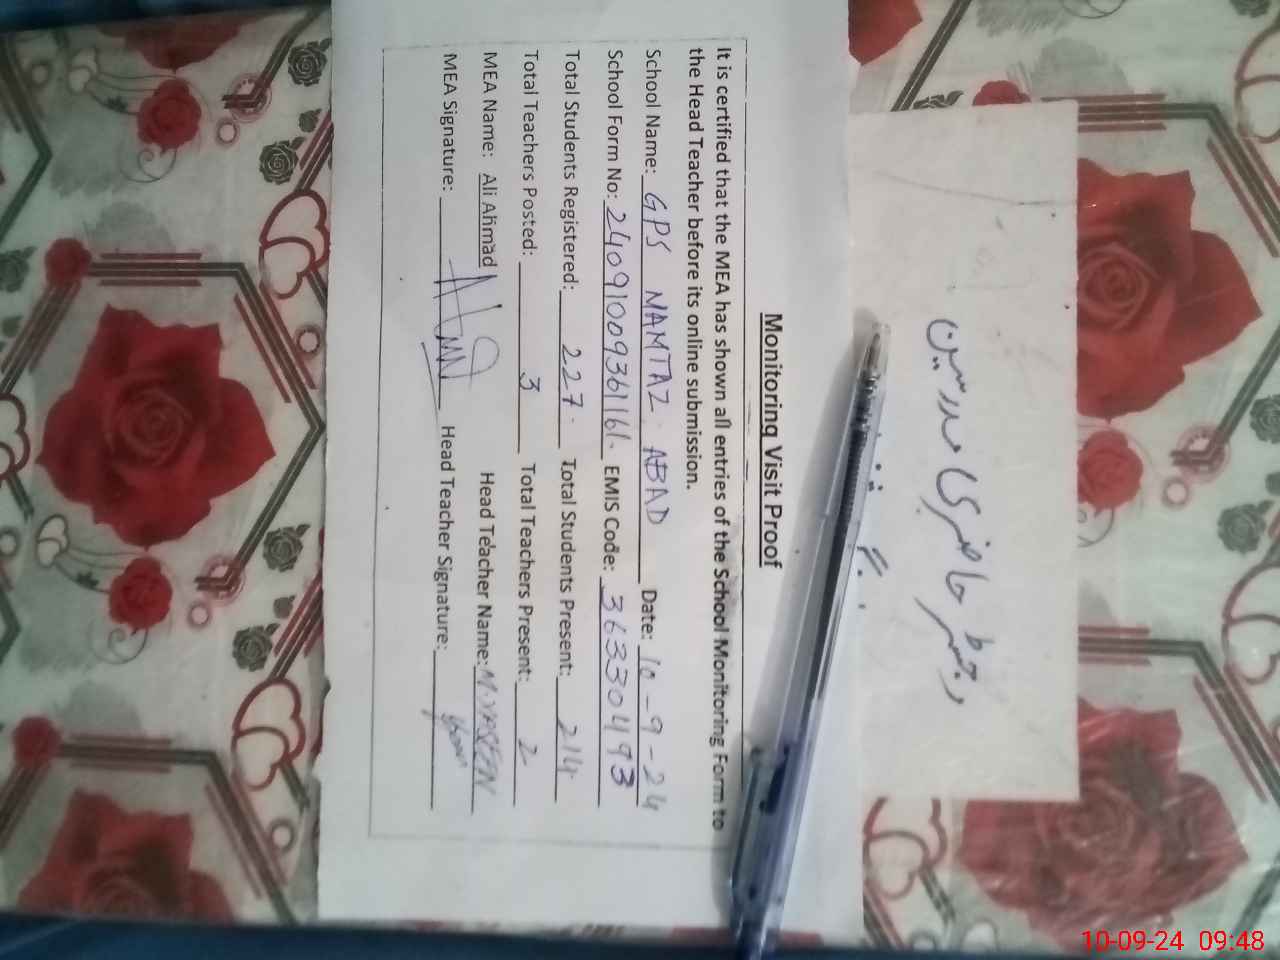 Monitoring Visit Proof
It is certified that the MEA has shown all entries of the School Monitoring Form to
the Head Teacher before its online submission.
School Name: GPS MAMTAZ ABAD Date: 10-9-24
School Form No: 24091009361161. EMIS Code: 36330493
Total Students Registered: 227. Total Students Present: 214
Total Teachers Posted: 3 Total Teachers Present: 2
MEA Name: Ali Ahmad Head Teacher Name: M. YASEEN
MEA Signature: Head Teacher Signature:
رجسٹر حاضری مدرسین
10-09-24 09:48